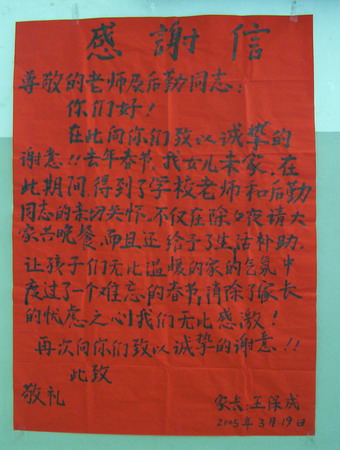 感謝信
尊敬的老师及后勤同志:
你们好!
在此向你们致以诚挚的
谢意!!去年春节,我女儿未家,在
此期间得到了学校老师和后勤
同志的亲切关怀.不仅在除夕夜请大
家共晚餐,而且还给予了生活补助.
让孩子们无比温暖的家的气氛中
度过了一个难忘的春节,消除了家长
的忧虑之心我们无比感激!
再次向你们致以诚挚的谢意!!
此致
敬礼
家长:王保成
2005年3月19日